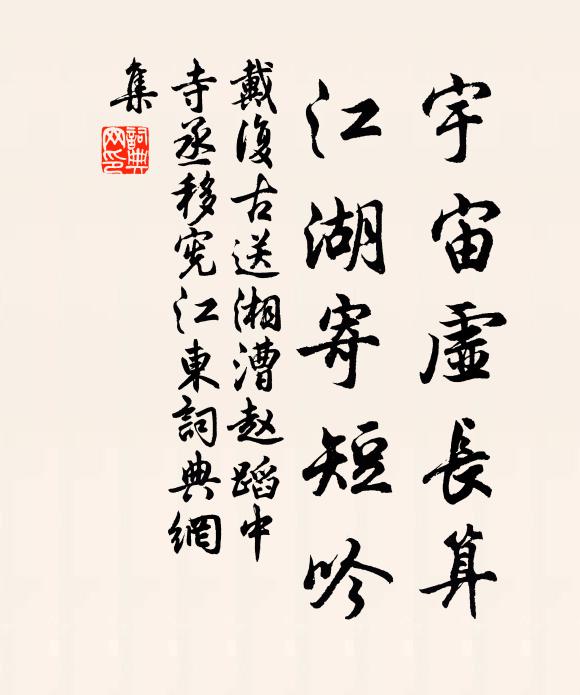 宇宙虛長算
江湖寄短吟
戴復古送湘漕赵蹈中
寺丞移宪江東詞典網
集
詞典
网印